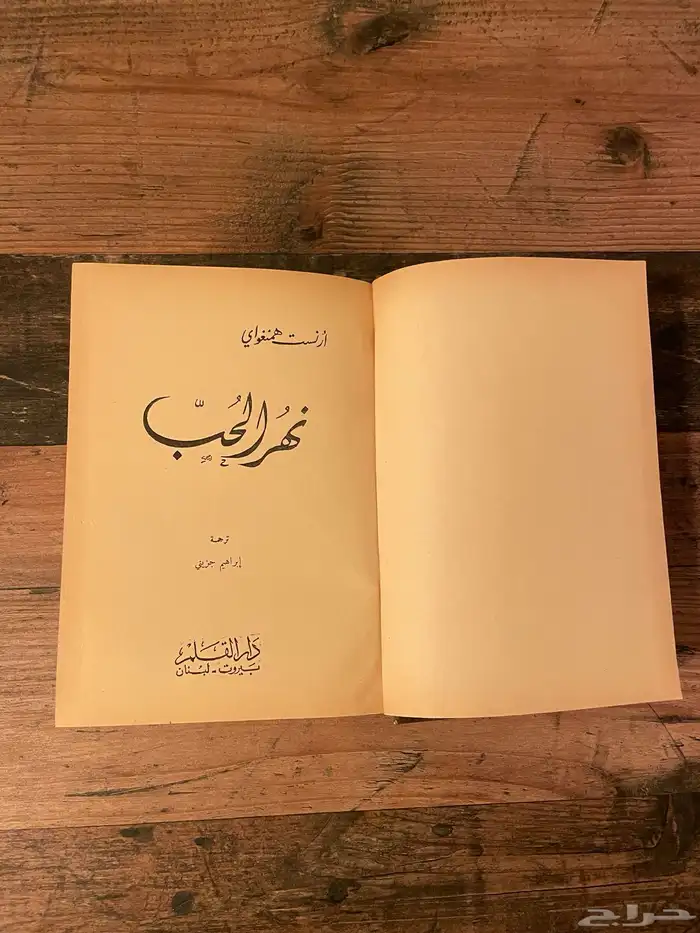 ارنست همنغواي
نهر الحُبّ
ترجمة
إبراهيم جزيني
دار القلم
بيروت - لبنان
حراج